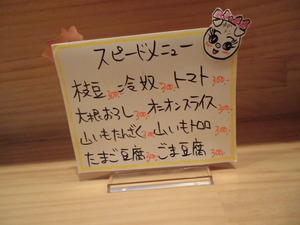 スピードメニュー
枝豆300.- 冷奴300.- トマト300.-
大根おろし300.- オニオンスライス300.-
山いもたんざく300.- 山いもトロロ300.-
たまご豆腐300.- ごま豆腐300.-